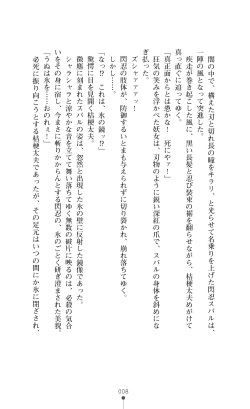 闇の中、構えた刃と切れ長の瞳をキラリ、と光らせて名乗りを上げた閃忍スバルは、
一陣の風となって突進した。
疾走が巻き起こした風に、黒い長髪と忍び装束の裾を翻らせながら、桔梗太夫めがけて
真っ直ぐに迫ってゆく。
「真正面からとは愚かな……死にやァ」
狂気の笑みを浮かべた妖女は、刃物のように鋭い深紅の爪で、スバルの身体を斜めにな
ぎ払った。
ズシャァァァッ！
しかし――。
閃忍の肢体が、防御するいとまも与えられずに切り裂かれ、崩れ落ちてゆく。
「なっ!?　これは、氷の鏡!?」
驚愕に目を見開く桔梗太夫。
微塵に刻まれたスバルの姿は、忽然と出現した氷の壁に反射した鏡像であった。
シャラシャラと涼やかな音を立てて舞い落ちてゆく無数の破片に映るのは、必殺の気合
いをその身に宿し、今まさに背後から斬りかからんとする閃忍の、氷のごとく研ぎ澄まされた美貌。
「うぬは氷を……おのれぇ！」
必死に振り向こうとする桔梗太夫であったが、その足元はいつの間にか氷に閉ざされ、
008